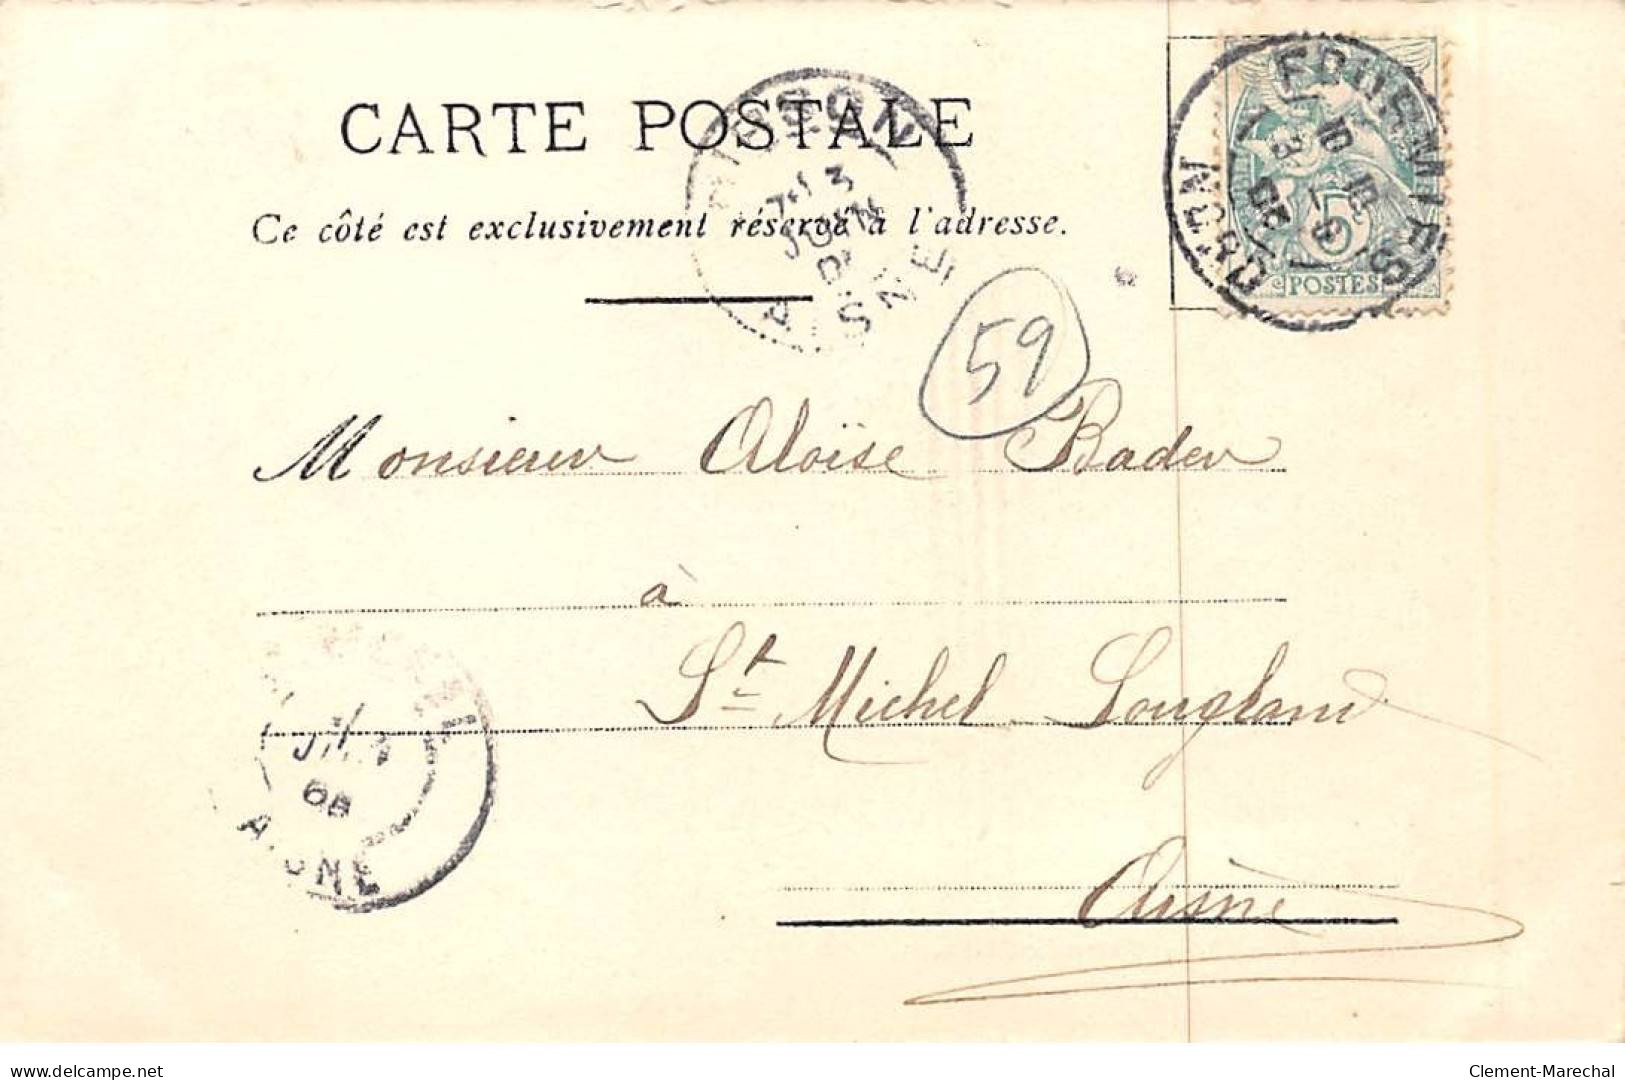 CARTE POSTALE
Ce côté est exclusivement réservé à l'adresse.
HIRSON
3
JUIN
AISNE
FOURMIES
NORD
5
POSTES
59
Monsieur Aloïse Bader
à
St Michel Sougland
Aisne
AISNE
delcampe.net
Clement-Marechal